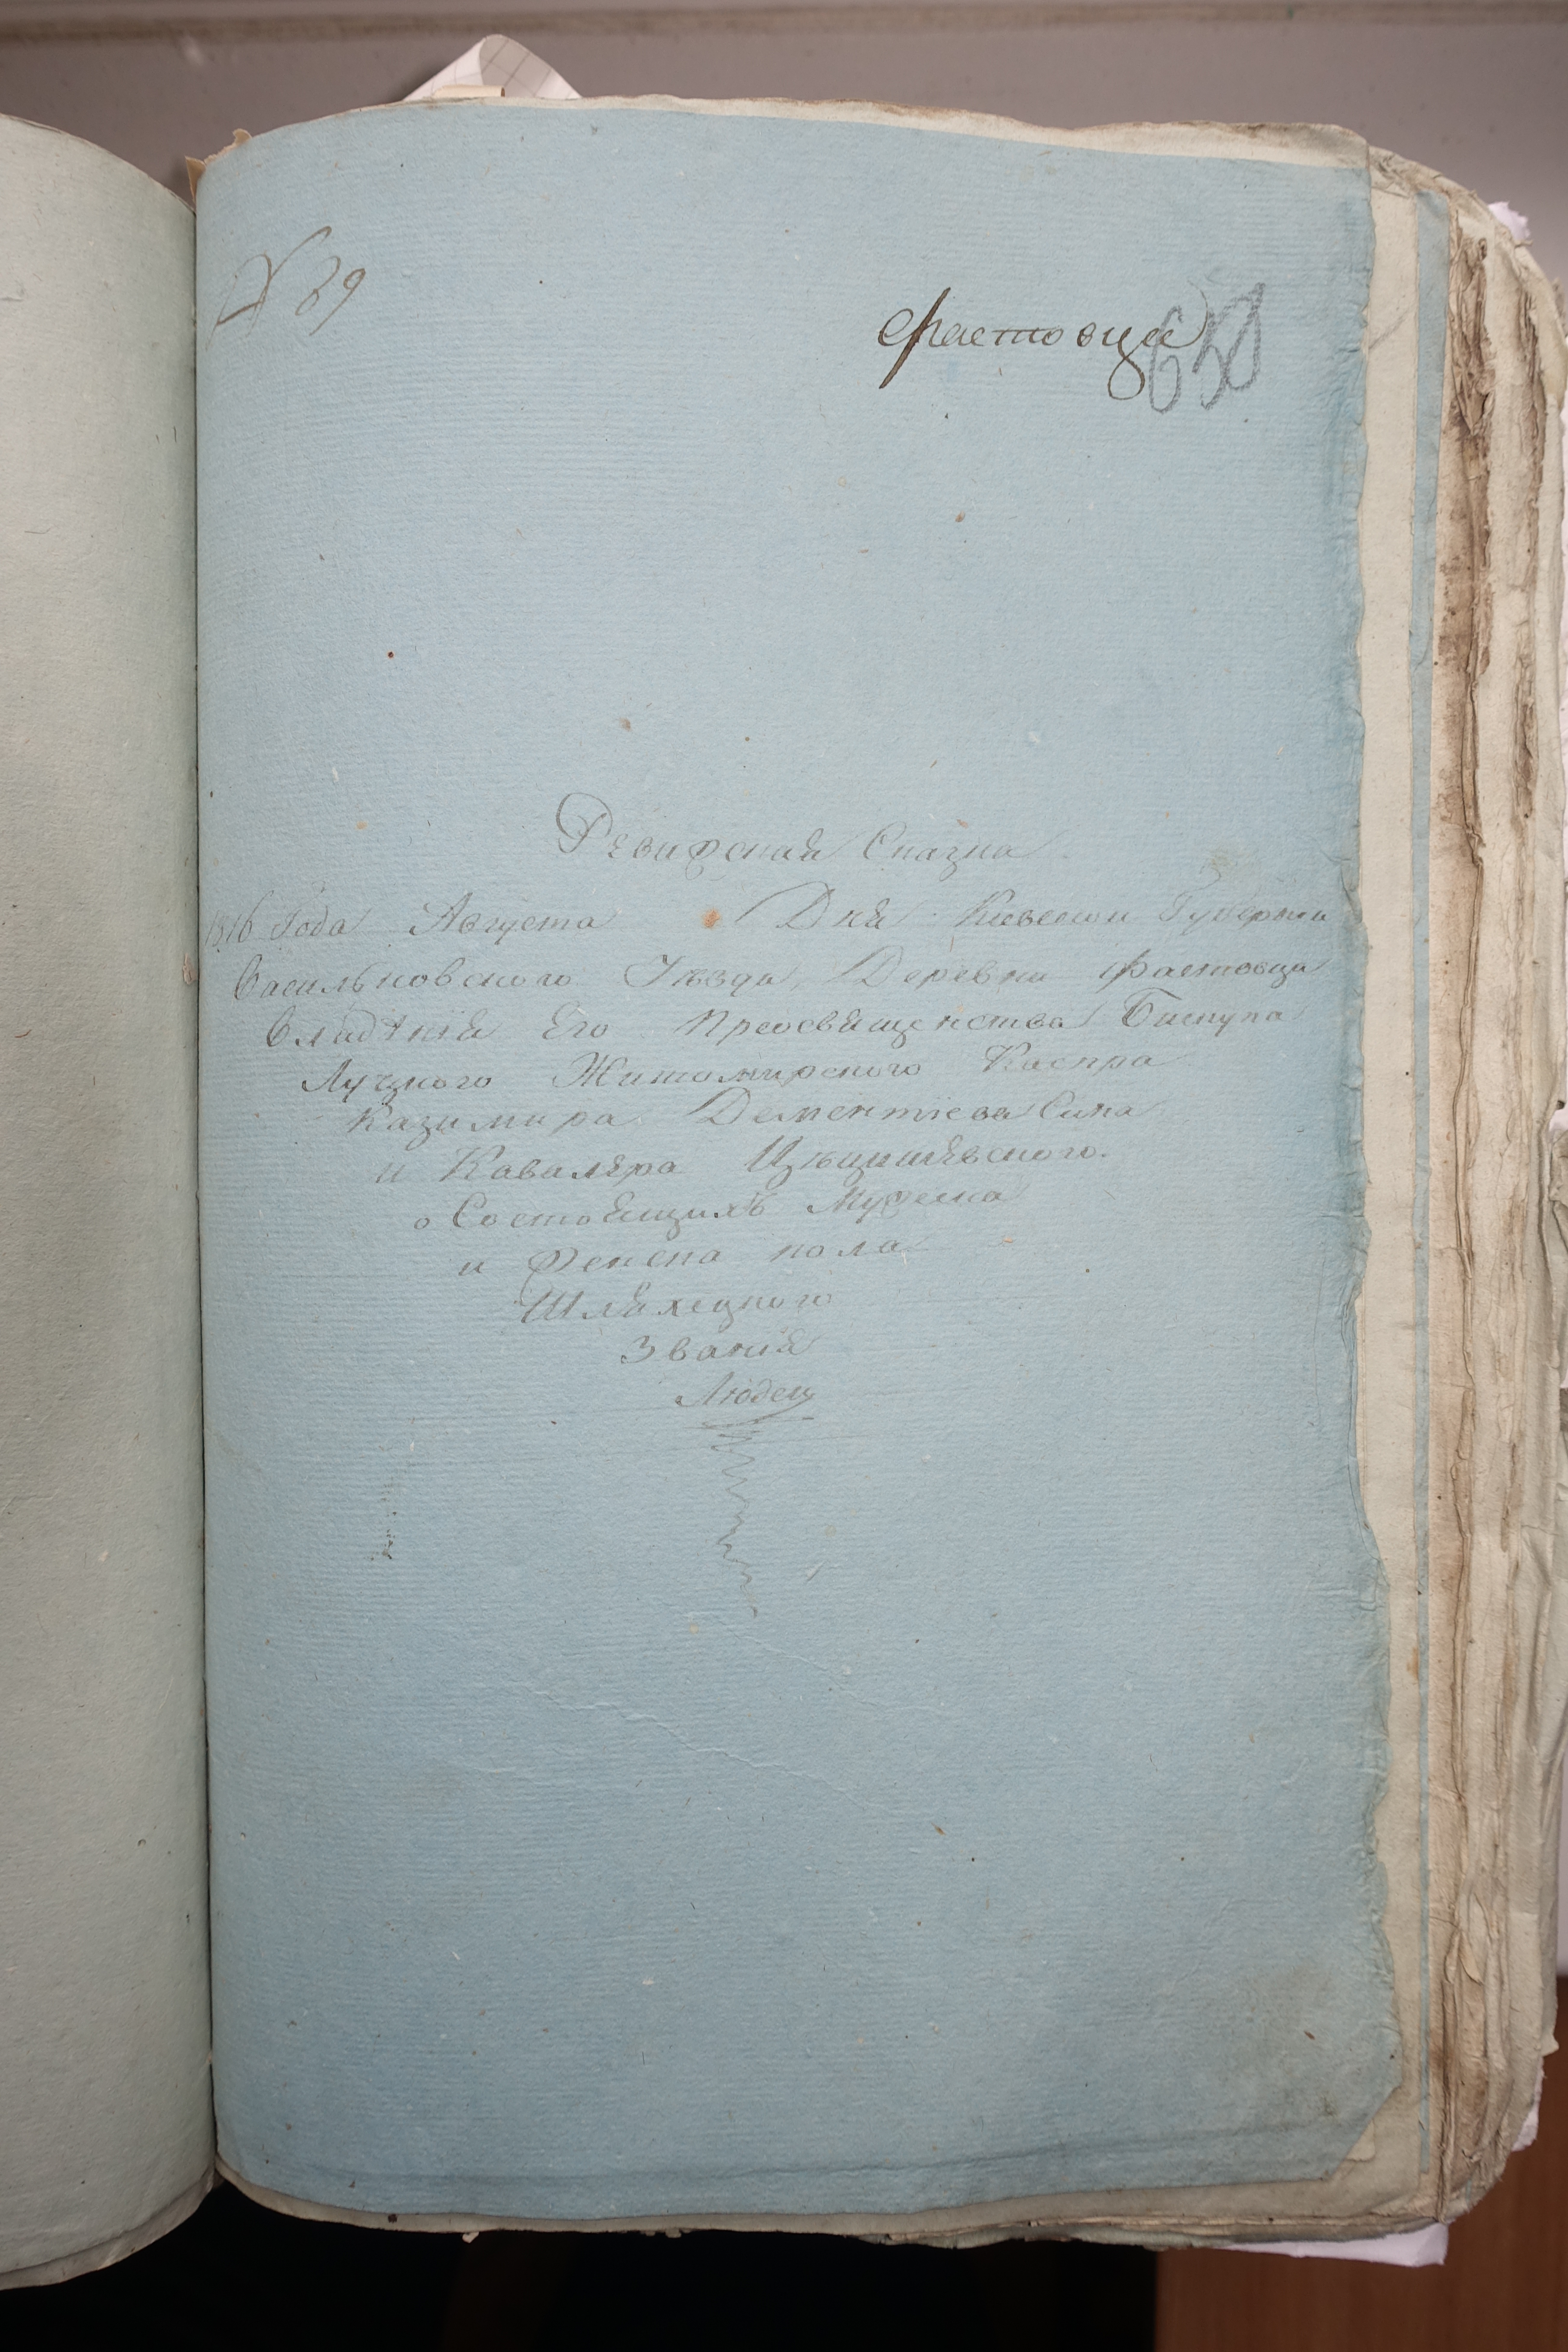 № 89
Фастовца
650
Ревизская Сказка
1816 Года Августа Дня Киевской Губернии
Васильковского Уѣзда, Деревни Фастовца
Владѣнія Его Преосвященства Бискупа
Луцкого Житомирского Каспра
Казимира Дементіева Сина
и Кавалера Цѣцишевского.
о Состоящихъ Мужеска
и Женска пола
Шляхецкого
Званія
Людей